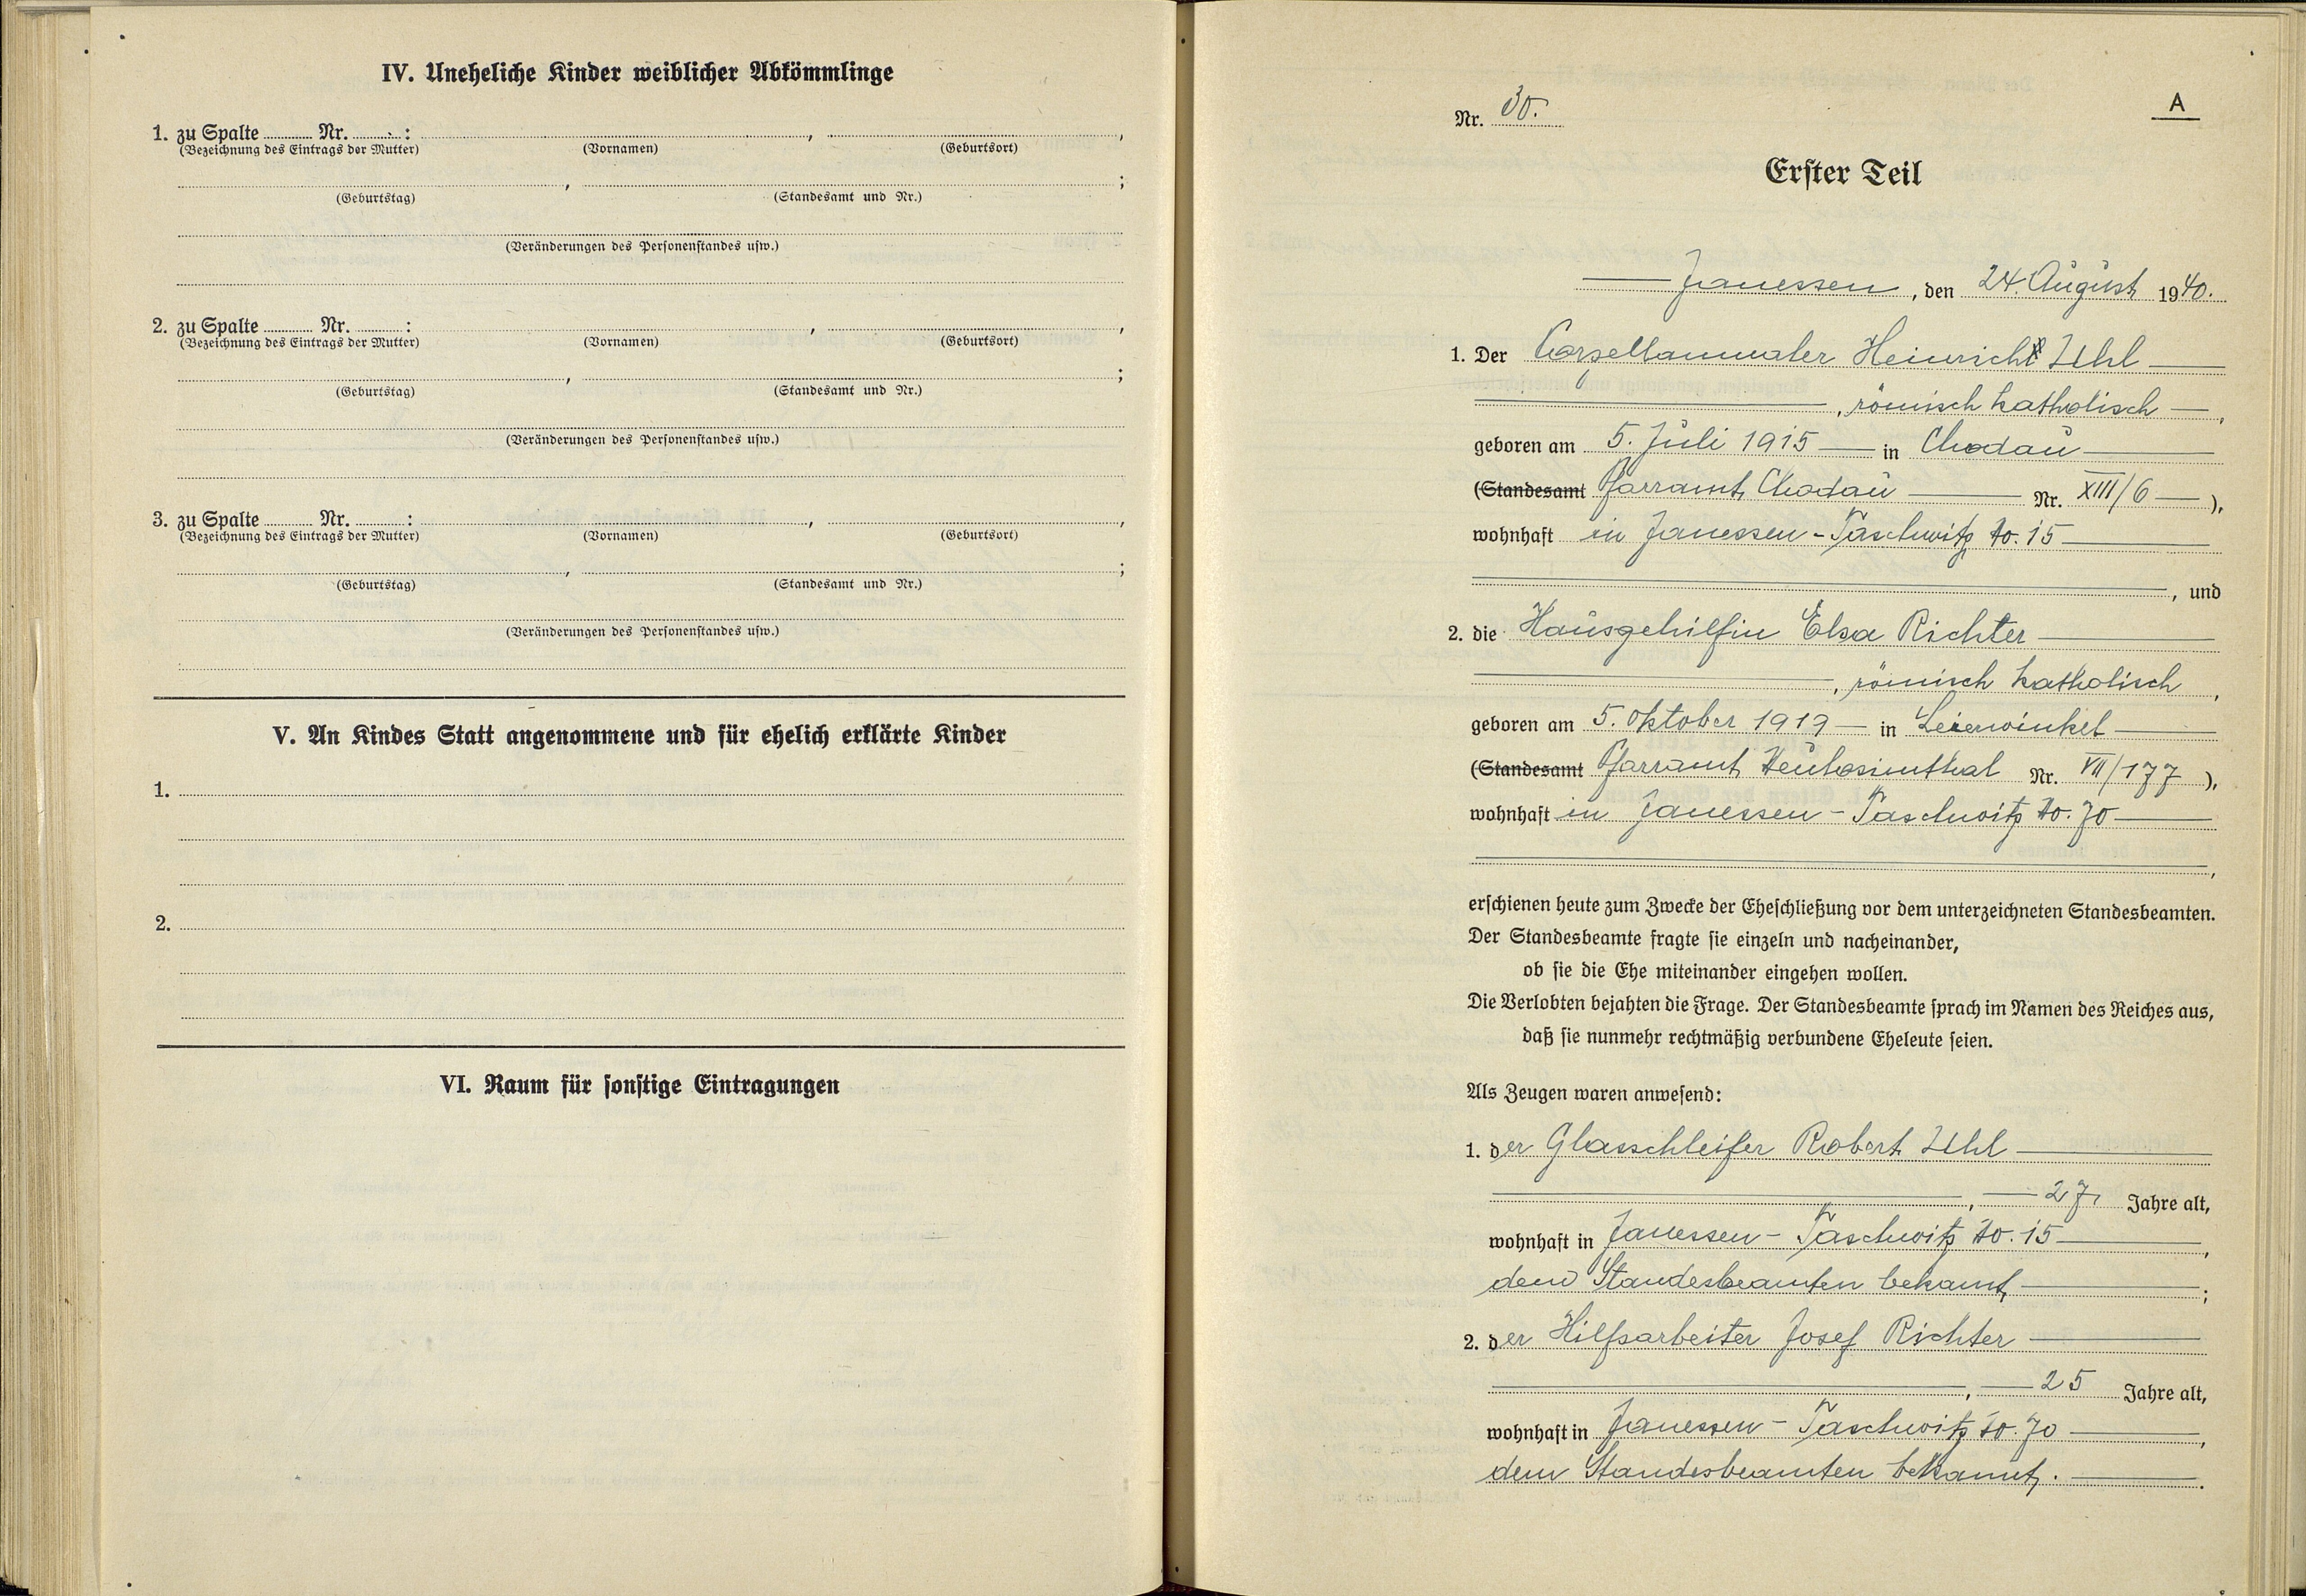 IV. Uneheliche Kinder weiblicher Abkömmlinge
1. zu Spalte ......... Nr. ......... : , ,
(Bezeichnung des Eintrags der Mutter) (Vornamen) (Geburtsort)
, ;
(Geburtstag) (Standesamt und Nr.)
(Veränderungen des Personenstandes usw.)
2. zu Spalte ......... Nr. ......... : , ,
(Bezeichnung des Eintrags der Mutter) (Vornamen) (Geburtsort)
, ;
(Geburtstag) (Standesamt und Nr.)
(Veränderungen des Personenstandes usw.)
3. zu Spalte ......... Nr. ......... : , ,
(Bezeichnung des Eintrags der Mutter) (Vornamen) (Geburtsort)
, ;
(Geburtstag) (Standesamt und Nr.)
(Veränderungen des Personenstandes usw.)
V. An Kindes Statt angenommene und für ehelich erklärte Kinder
1.
2.
VI. Raum für sonstige Eintragungen
A
Nr. 30.
Erster Teil
Janessen, den 24. August 1940.
1. Der Porzellanmaler Heinrich Uhl
, römisch katholisch ,
geboren am 5. Juli 1915 in Chodau
(Standesamt Pfarramt Chodau Nr. XIII/6 ),
wohnhaft in Janessen-Taschwitz No. 15
, und
2. die Hausgehilfin Elsa Richter
, römisch katholisch ,
geboren am 5. Oktober 1919 in Leierwinkel
(Standesamt Pfarramt Neukosimthal Nr. VII/177 ),
wohnhaft in Janessen-Taschwitz No. 70
,
erschienen heute zum Zwecke der Eheschließung vor dem unterzeichneten Standesbeamten.
Der Standesbeamte fragte sie einzeln und nacheinander,
ob sie die Ehe miteinander eingehen wollen.
Die Verlobten bejahten die Frage. Der Standesbeamte sprach im Namen des Reiches aus,
daß sie nunmehr rechtmäßig verbundene Eheleute seien.
Als Zeugen waren anwesend:
1. der Glasschleifer Robert Uhl
, 27, Jahre alt,
wohnhaft in Janessen-Taschwitz No. 15 ,
dem Standesbeamten bekannt ;
2. der Hilfsarbeiter Josef Richter
, 25 Jahre alt,
wohnhaft in Janessen-Taschwitz No. 70 ,
dem Standesbeamten bekannt.